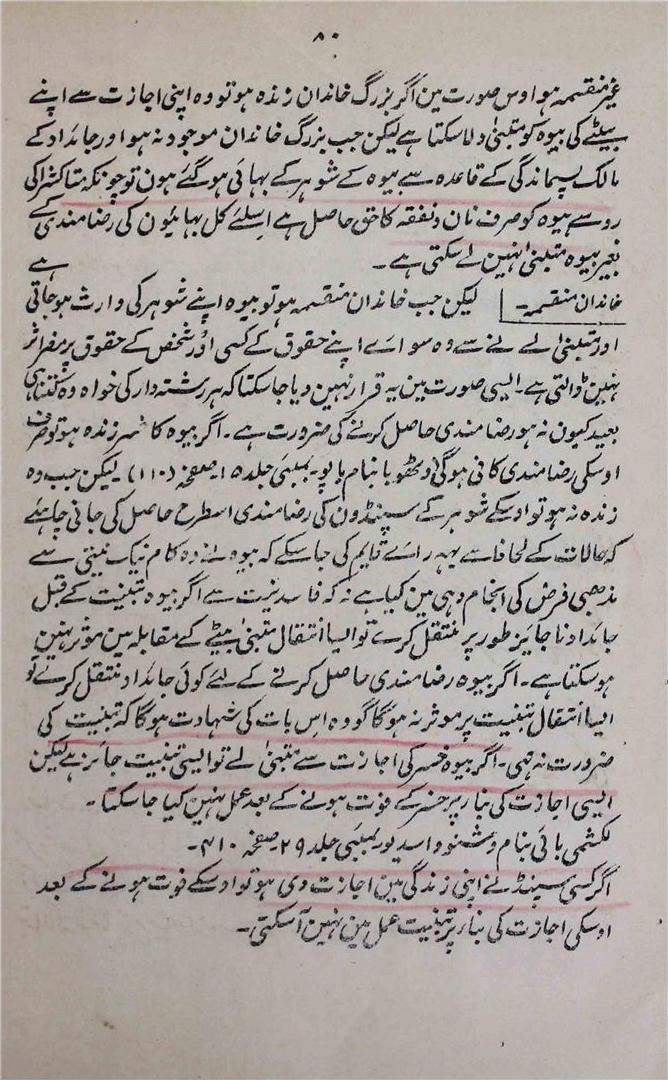 ۸۰
غیر منقسمہ ہو اوس صورت مین اگر بزرگ خاندان زندہ ہو تو وہ اپنی اجازت سے اپنے
بیٹے کی بیوہ کو متبنیٰ دلا سکتا ہے لیکن جب بزرگ خاندان موجود نہ ہو اور جائداد کے
مالک پسماندگی کے قاعدہ سے بیوہ کے شوہر کے بھائی ہو گئے ہون تو چونکہ متاکشرا کی
رو سے بیوہ کو صرف نان و نفقہ کا حق حاصل ہے اسلئے کل بھائیون کی رضامندی کے
بغیر بیوہ متبنیٰ نہین لے سکتی ہے ۔
خاندان منقسمہ ۔ لیکن جب خاندان منقسمہ ہو تو بیوہ اپنے شوہر کی وارث ہو جاتی ہے
اور متبنیٰ لے نے سے وہ سواے اپنے حقوق کے کسی اور شخص کے حقوق پر مضر اثر
نہین ڈالتی ہے ۔ ایسی صورت مین یہ قرار نہین دیا جا سکتا کہ ہر رشتہ دار کی خواہ وہ کتنا ہی
بعید کیون نہ ہو رضامندی حاصل کرنے کی ضرورت ہے ۔ اگر بیوہ کا خسر زندہ ہو تو صرف
اوسکی رضامندی کافی ہوگی (وٹھوبا بنام باپو ۔ بمبئی جلد ۱۵ ۔ صفحہ ۱۱۰) لیکن جب وہ
زندہ نہ ہو تو اوسکے شوہر کے سپنڈون کی رضامندی اسطرح حاصل کی جانی چاہئے
کہ حالات کے لحاظ سے یہہ راے قایم کی جا سکے کہ بیوہ نے وہ کام نیک نیتی سے
مذہبی فرض کی انجام دہی مین کیا ہے نہ کہ فاسد نیت سے اگر بیوہ تبنیت کے قبل
جائداد ناجائز طور پر منتقل کرے تو ایسا انتقال متبنیٰ بیٹے کے مقابلہ مین موثر نہین
ہو سکتا ہے ۔ اگر بیوہ رضامندی حاصل کرنے کے لئے کوئی جائداد منتقل کرے تو
ایسا انتقال تبنیت پر موثر نہ ہوگا گو وہ اس بات کی شہادت ہوگا کہ تبنیت کی
ضرورت نہ تھی ۔ اگر بیوہ خسر کی اجازت سے متبنیٰ لے تو ایسی تبنیت جائز ہے لیکن
ایسی اجازت کی بنا پر خسر کے فوت ہونے کے بعد عمل نہین کیا جا سکتا ۔
لکشمی بائی بنام وشنو واسدیو ۔ بمبئی جلد ۲۹ ۔ صفحہ ۴۱۰ ۔
اگر کسی سپنڈ نے اپنی زندگی مین اجازت دی ہو تو اوسکے فوت ہونے کے بعد
اوسکی اجازت کی بنا پر تبنیت عمل مین نہین آ سکتی ۔